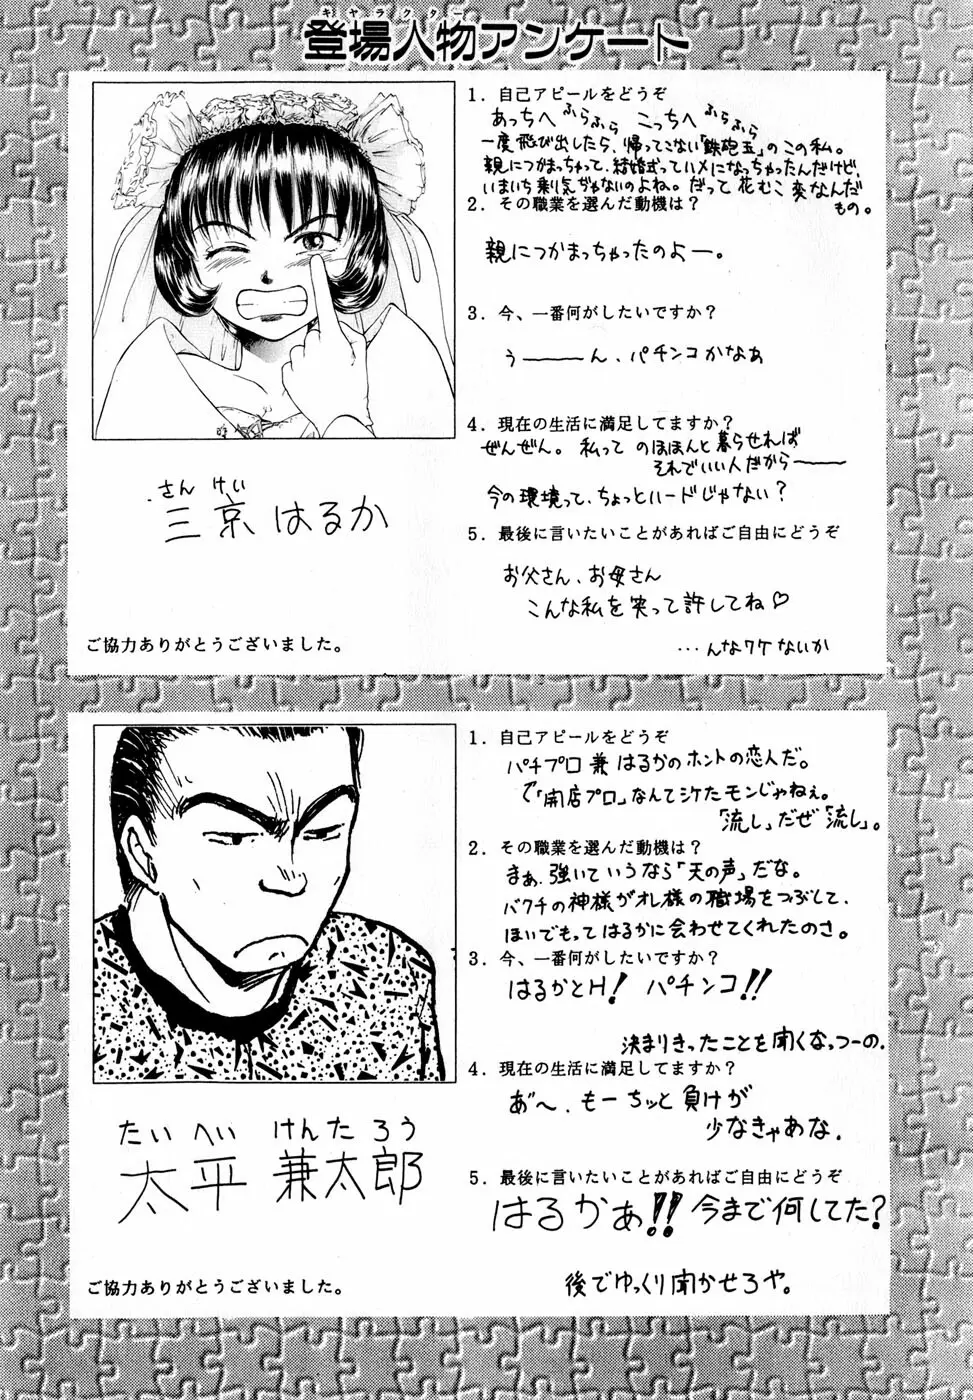 キャラクター
登場人物アンケート
1．自己アピールをどうぞ
あっちへ ふらふら こっちへ ふらふら
一度飛び出したら、帰ってこない「鉄砲玉」のこの私。
親につかまっちゃって、結婚式ってハメになっちゃったんだけど、
いまいち乗り気がないのよね。だって 花むこ 変なんだ
もの。
2．その職業を選んだ動機は？
親につかまっちゃったのよー。
3．今、一番何がしたいですか？
う———ん、パチンコかなぁ
4．現在の生活に満足してますか？
ぜんぜん。私って のほほんと暮らせれば
それでいい人だから———
今の環境って、ちょっとハードじゃない？
5．最後に言いたいことがあればご自由にどうぞ
お父さん、お母さん
こんな私を笑って許してね♡
…んなワケないか
さん けい
三京 はるか
ご協力ありがとうございました。
1．自己アピールをどうぞ
パチプロ兼はるかのホントの恋人だ。
で「開店プロ」なんてシケたモンじゃねぇ。
「流し」だぜ「流し」。
2．その職業を選んだ動機は？
まぁ、強いていうなら「天の声」だな。
バクチの神様がオレ様の職場をつぶして、
ほいでもってはるかに会わせてくれたのさ。
3．今、一番何がしたいですか？
はるかとH！ パチンコ!!
決まりきったことを聞くなっつーの。
4．現在の生活に満足してますか？
あ゛〜、もーちッと負けが
少なきゃあな。
5．最後に言いたいことがあればご自由にどうぞ
はるかぁ!! 今まで何してた？
後でゆっくり聞かせろや。
たい へい けんたろう
太平 兼太郎
ご協力ありがとうございました。